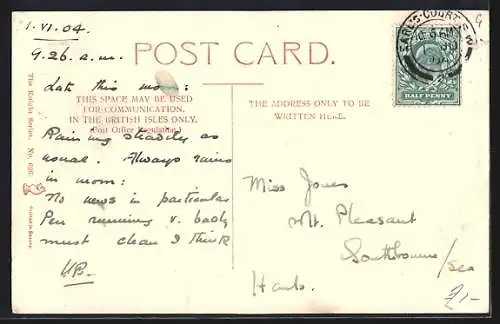 1.VI.04.
9.26. a.m.
POST CARD.
Late this morn:
THIS SPACE MAY BE USED
FOR COMMUNICATION.
IN THE BRITISH ISLES ONLY.
(Post Office Regulation.)
THE ADDRESS ONLY TO BE
WRITTEN HERE.
Raining steadily as
usual. Always rains
in morn:
No news in particular
Pen running v. badly
must clean I think
HB.
The Knight Series. No. 626.
EARL'S-COURT S.W.
HALF PENNY
Miss Jones
Mt. Pleasant
Southbourne/Sea
Hants.
£1-